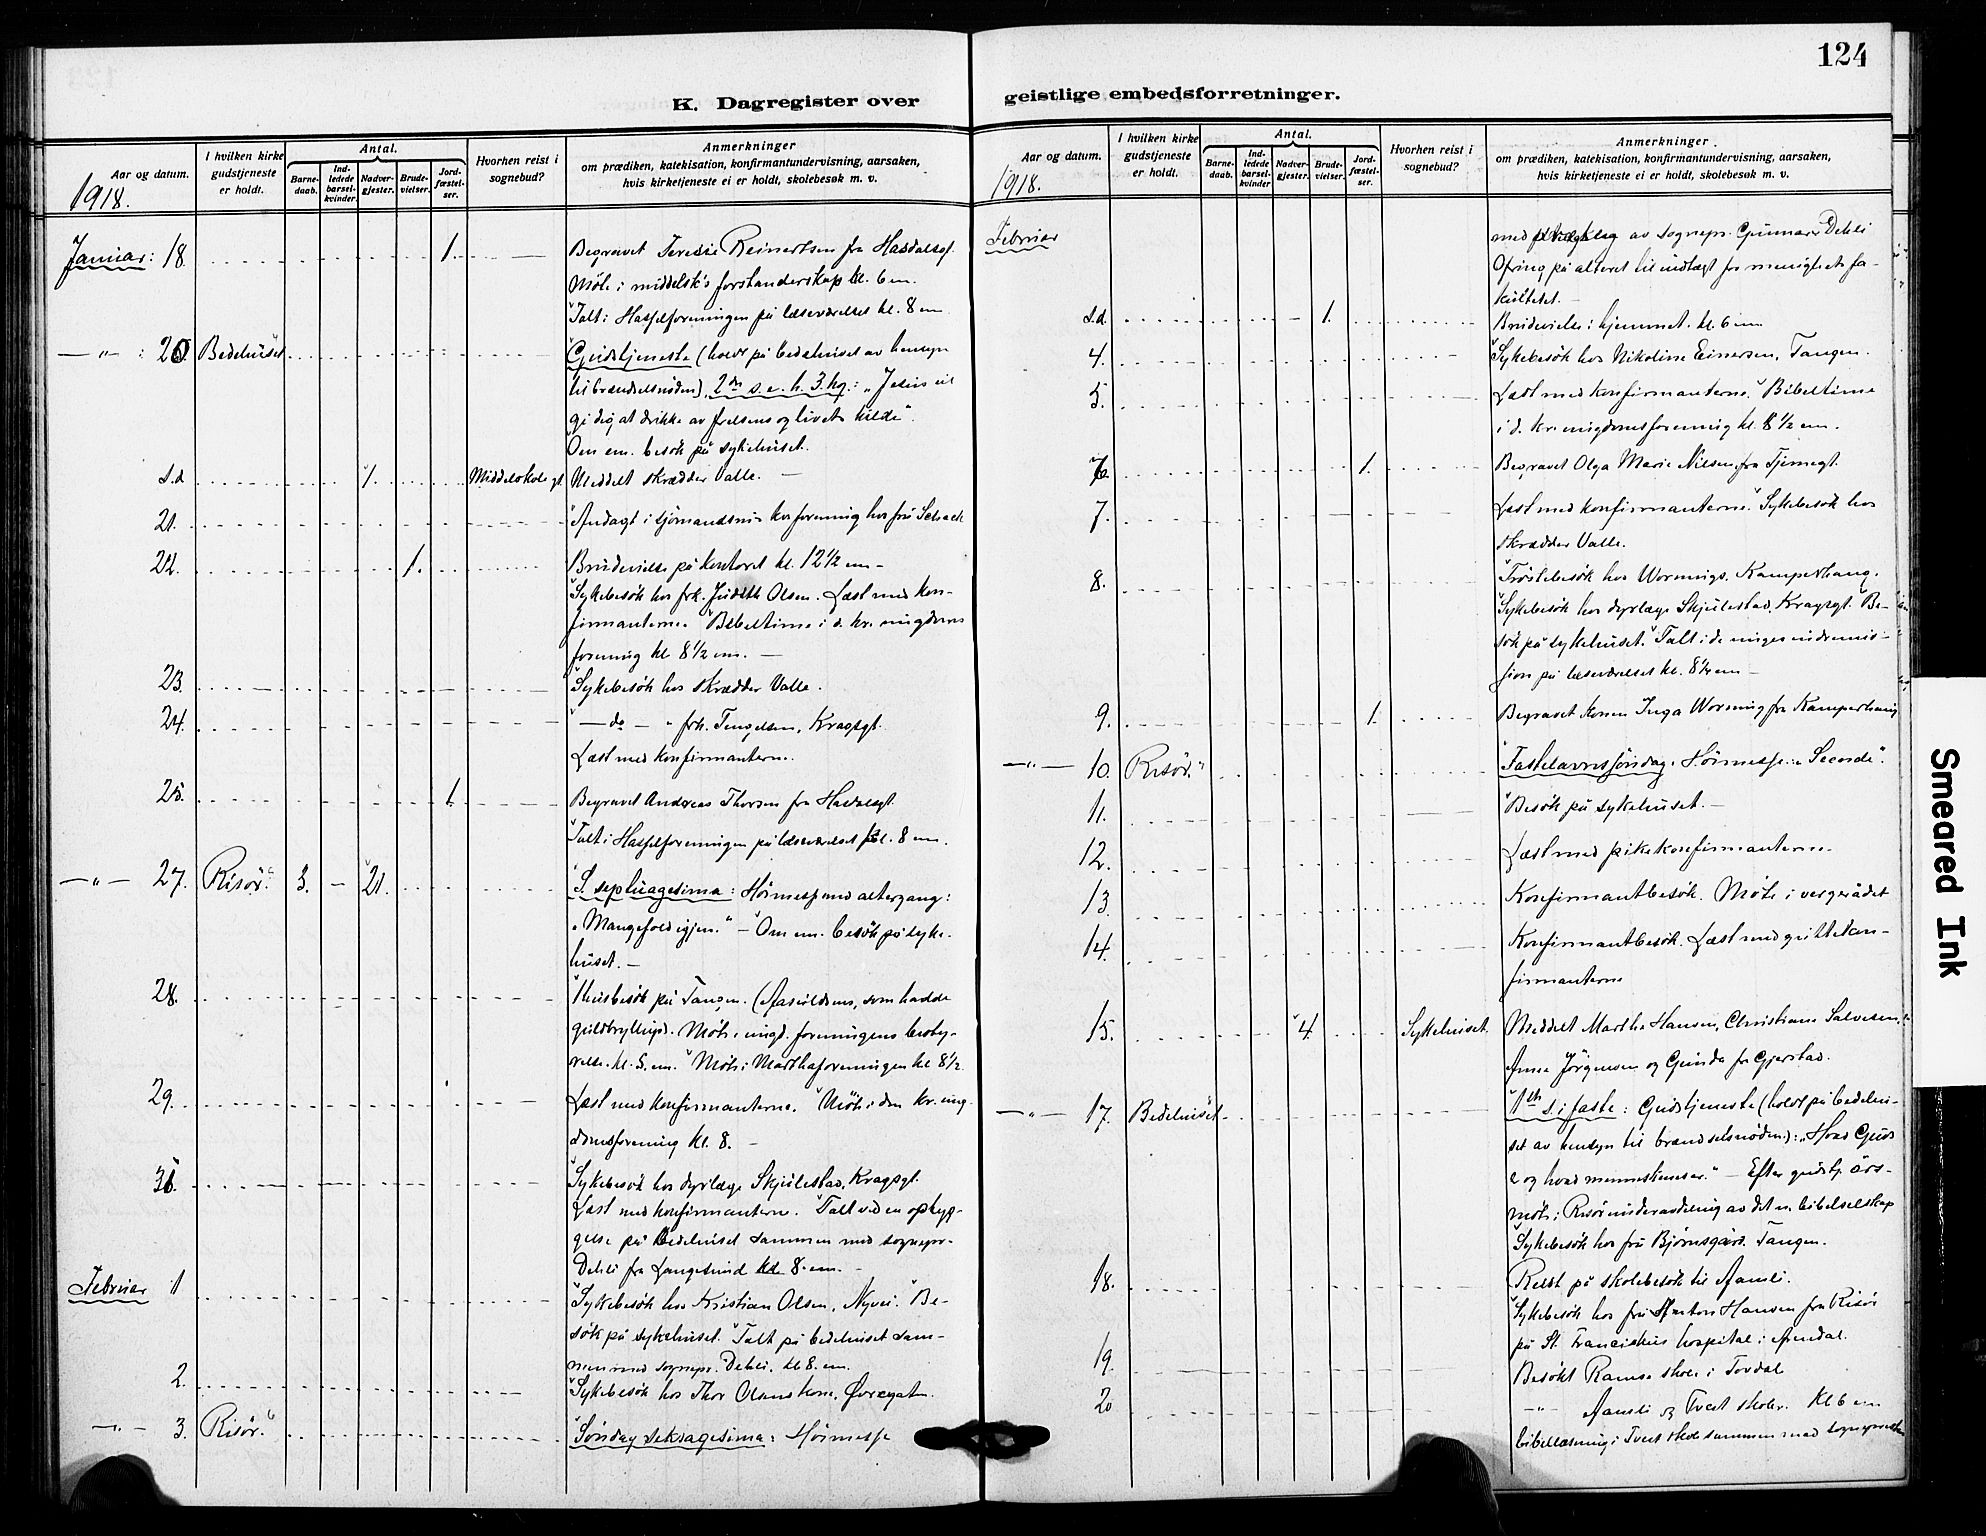 124
K. Dagregister over
Aar og datum.
I hvilken kirke gudstjeneste er holdt.
Antal.
Barne-daab.
Ind-ledede barsel-kvinder.
Nadver-gjester.
Brude-vielser.
Jord-fæstel-ser.
Hvorhen reist i sognebud?
Anmerkninger
om prædiken, katekisation, konfirmantundervisning, aarsaken,
hvis kirketjeneste ei er holdt, skolebesøk m. v.
1918.
Januar: 18. 1. Begravet Teresie Reinertsen fra Hasdalsgt.
Möte i middelsk's forstanderskap kl. 6 em.
Talt i Hasselforeningen på læseværelset kl. 8 em
—"— : 20. Bedehuset Gudstjeneste (holdt på bedehuset av hensyn
til brændselsnöden). 2den s. e. h. 3. kg.: „Jesus vil
gi dig at drikke av frelsens og livets kilde".
Om em. besök på sykehuset.
s.d. 1. Middelskolegt. Meddelt skrædder Valle. —
21. Andagt i sjömandsmis. kvforening hos fru Schack
22. 1. Brudevielse på kontoret kl. 12 1/2 em –
Sykebesök hos frk. Judith Olsen. Læst med kon-
firmanterne. Bibeltime i d. kr. ungdoms
forening kl 8 1/2 em. —
23. Sykebesök hos skrædder Valle.
24. — do — " frk. Tengelsen, Kragsgt.
Læst med konfirmanterne.
25. 1. Begravet Andreas Thorsen fra Hasdalsgt.
Talt i Hasselforeningen på læseværelset kl. 8 em.
—"— 27. Risör. 3. – 21. S. septuagesima: Höimesse med altergang:
„Mangefold igjen." – Om em. besök på syke-
huset. —
28. Husbesök på Tangen. (Aasuldsens, som hadde
guldbryllup). Möte i ungd. foreningens besty-
relse kl. 5. em. Möte i Marthaforeningen kl 8 1/2
29. Læst med konfirmanterne. Möte i den kr. ung-
domsforening kl. 8. –
31. Sykebesök hos dyrlæge Skjulestad, Kragsgt.
Læst med konfirmanterne. Talt ved en opbyg-
gelse på Bedehuset sammen med sognepr.
Dehli fra Langesund kl 8. em. –
Februar 1 Sykebesök hos Kristian Olsen, Nyvei. Be-
sök på sykehuset. Talt på bedehuset sam-
men med sognepr. Dehli. kl 8. em.
2. Sykebesök hos Thor Olsens kone, Øvregaten.
—"— 3. Risör. Söndag seksagesima: Höimesse
geistlige embedsforretninger.
Aar og datum.
I hvilken kirke gudstjeneste er holdt.
Antal.
Barne-daab.
Ind-ledede barsel-kvinder
Nadver-gjester.
Brude-vielser.
Jord-fæstel-ser.
Hvorhen reist i sognebud?
Anmerkninger
om prædiken, katekisation, konfirmantundervisning, aarsaken,
hvis kirketjeneste ei er holdt, skolebesøk m. v.
1918.
Februar med av sognepr. Gunnar Dehli
Ofring på alteret til indtægt for menighetsfa-
kultetet. –
s.d. 1. Brudevielse i hjemmet. kl. 6 em
4. Sykebesök hos Nikoline Einersen, Tangen.
5. Læst med konfirmanterne. Bibeltime
i d. kr. ungdomsforening kl. 8 1/2 em.
6. 1. Begravet Olga Marie Nilsen fra Tjennegt.
7. Læst med konfirmanterne. Sykebesök hos
skrædder Valle.
8. Tröstebesök hos Wornings. Kamperhaug.
Sykebesök hos dyrlæge Skjulestad, Kragsgt. Be-
sök på sykehuset. Talt i de unges indremis-
sion på læseværelset kl. 8 1/2 em –
9. 1. Begravet konen Inga Worning fra Kamperhaug
—"— 10. Risör. Fastelavnssöndag. Höimesse: „Se
11. Besök på sykehuset. –
12. Læst med pikekonfirmanterne
13. Konfirmantbesök. Möte i vergerådet
14. Konfirmantbesök. Læst med guttekon-
firmanterne
15. 4. Sykehuset. Meddelt Marthe Hansen, Christiane Salvesen,
Anne Jörgensen og Gunda fra Gjerstad.
—"— 17. Bedehuset 1ste s. i faste: Gudstjeneste (holdt på bedehu-
set av hensyn til brændselsnöden): „Hvad Guds
e og hvad menneskenes er." – Efter gudstj. års-
möte i Risör underavdeling av det n. bibelselskap
Sykebesök hos fru Björnsgård. Tangen.
18. Reist på skolebesök til Aamli.
Sykebesök hos fru Anton Hansen fra Risör
på St. Franciskus hospital i Arendal.
19. Besökt Ramse skole i Tovdal
20 —"— Aamli og Tveit skoler. Kl 6 em
bibellæsning i Tveit skole sammen med sognepresten
Smeared Ink